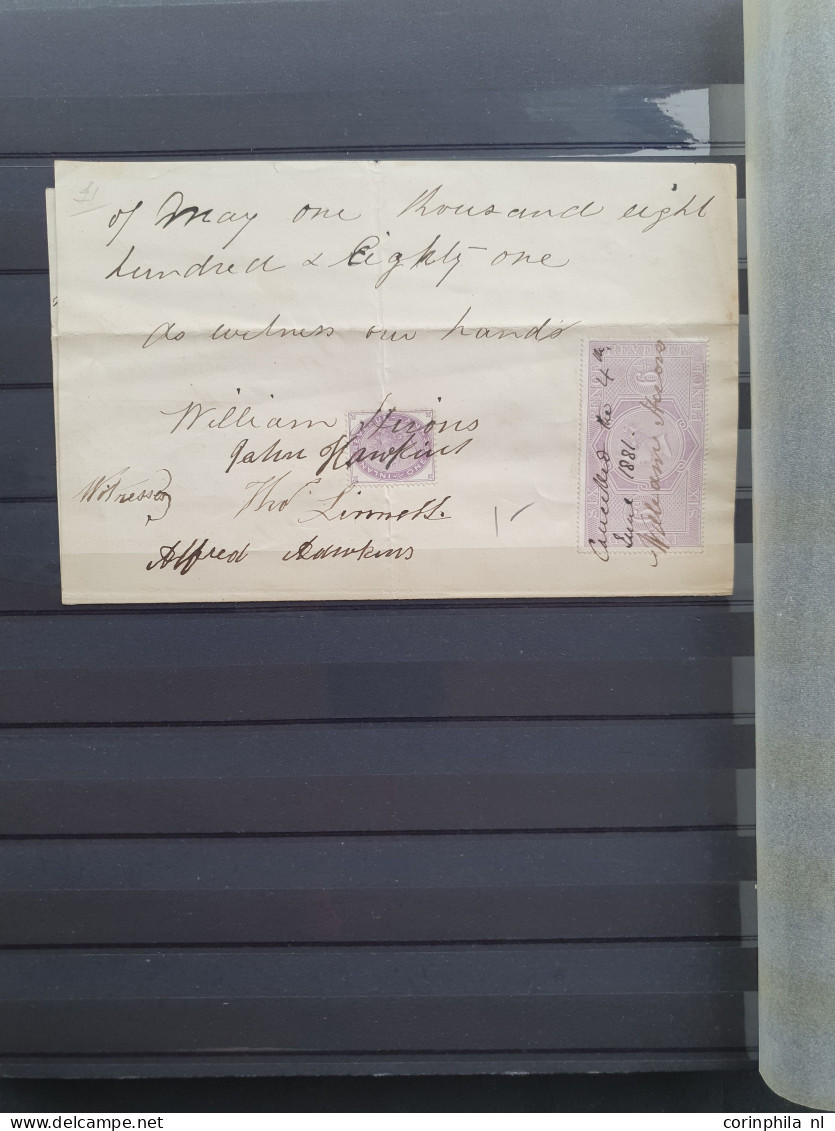 of May one thousand eight
hundred & Eighty one
As witness our hands
William Hirons
John Hawkins
Witnesses
Thos Linnett
Alfred Hawkins
SIX PENCE
SIX PENCE
REVENUE
6
Cancelled the 4th
June 1881.
William Hirons
ONE
INLAND
corinphila nl